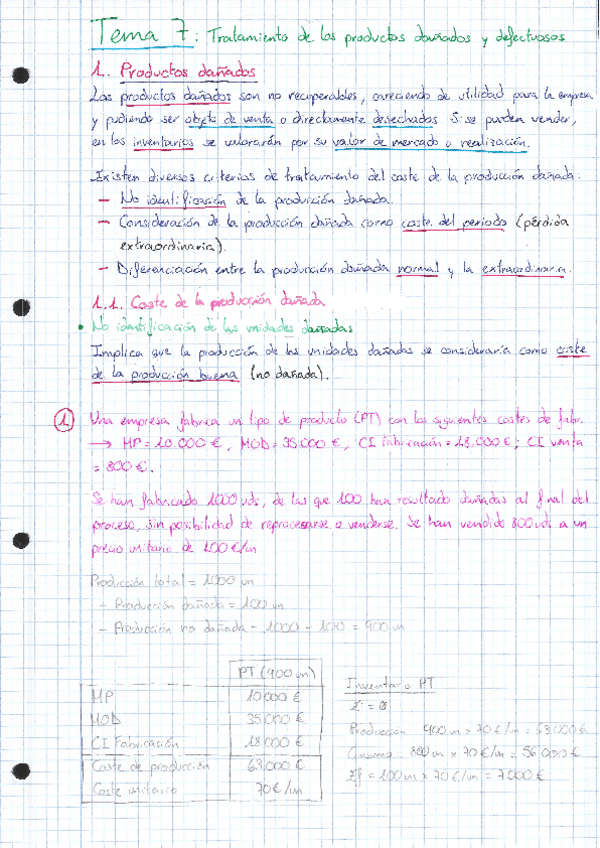 Tema 7: Tratamiento de los productos dañados y defectuosos
1. Productos dañados
Los productos dañados son no recuperables, careciendo de utilidad para la empresa
y pudiendo ser objeto de venta o directamente desechados. Si se pueden vender,
en los inventarios se valorarán por su valor de mercado o realización.
Existen diversos criterios de tratamiento del coste de la producción dañada:
- No identificación de la producción dañada.
- Consideración de la producción dañada como coste del periodo (pérdida
extraordinaria).
- Diferenciación entre la producción dañada normal y la extraordinaria.
1.1. Coste de la producción dañada
• No identificación de las unidades dañadas
Implica que la producción de las unidades dañadas se consideraría como coste
de la producción buena (no dañada).
1 Una empresa fabrica un tipo de producto (PT) con los siguientes costes de fabr.
→ MP = 10.000 €, MOD = 35.000 €, CI fabricación = 18.000 €; CI venta
= 800 €.
Se han fabricado 1000 uds, de las que 100 han resultado dañadas al final del
proceso, sin posibilidad de reprocesarse o venderse. Se han vendido 800 uds a un
precio unitario de 100 €/un
Producción total = 1000 un
- Producción dañada = 100 un
- Producción no dañada = 1000 - 100 = 900 un
PT (900 un)
MP 10.000 €
MOD 35.000 €
CI Fabricación 18.000 €
Coste de producción 63.000 €
Coste unitario 70 €/un
Inventario PT
Producción 900 un x 70 €/un = 63.000 €
Consumo 800 un x 70 €/un = 56.000 €
If = 100 un x 70 €/un = 7.000 €